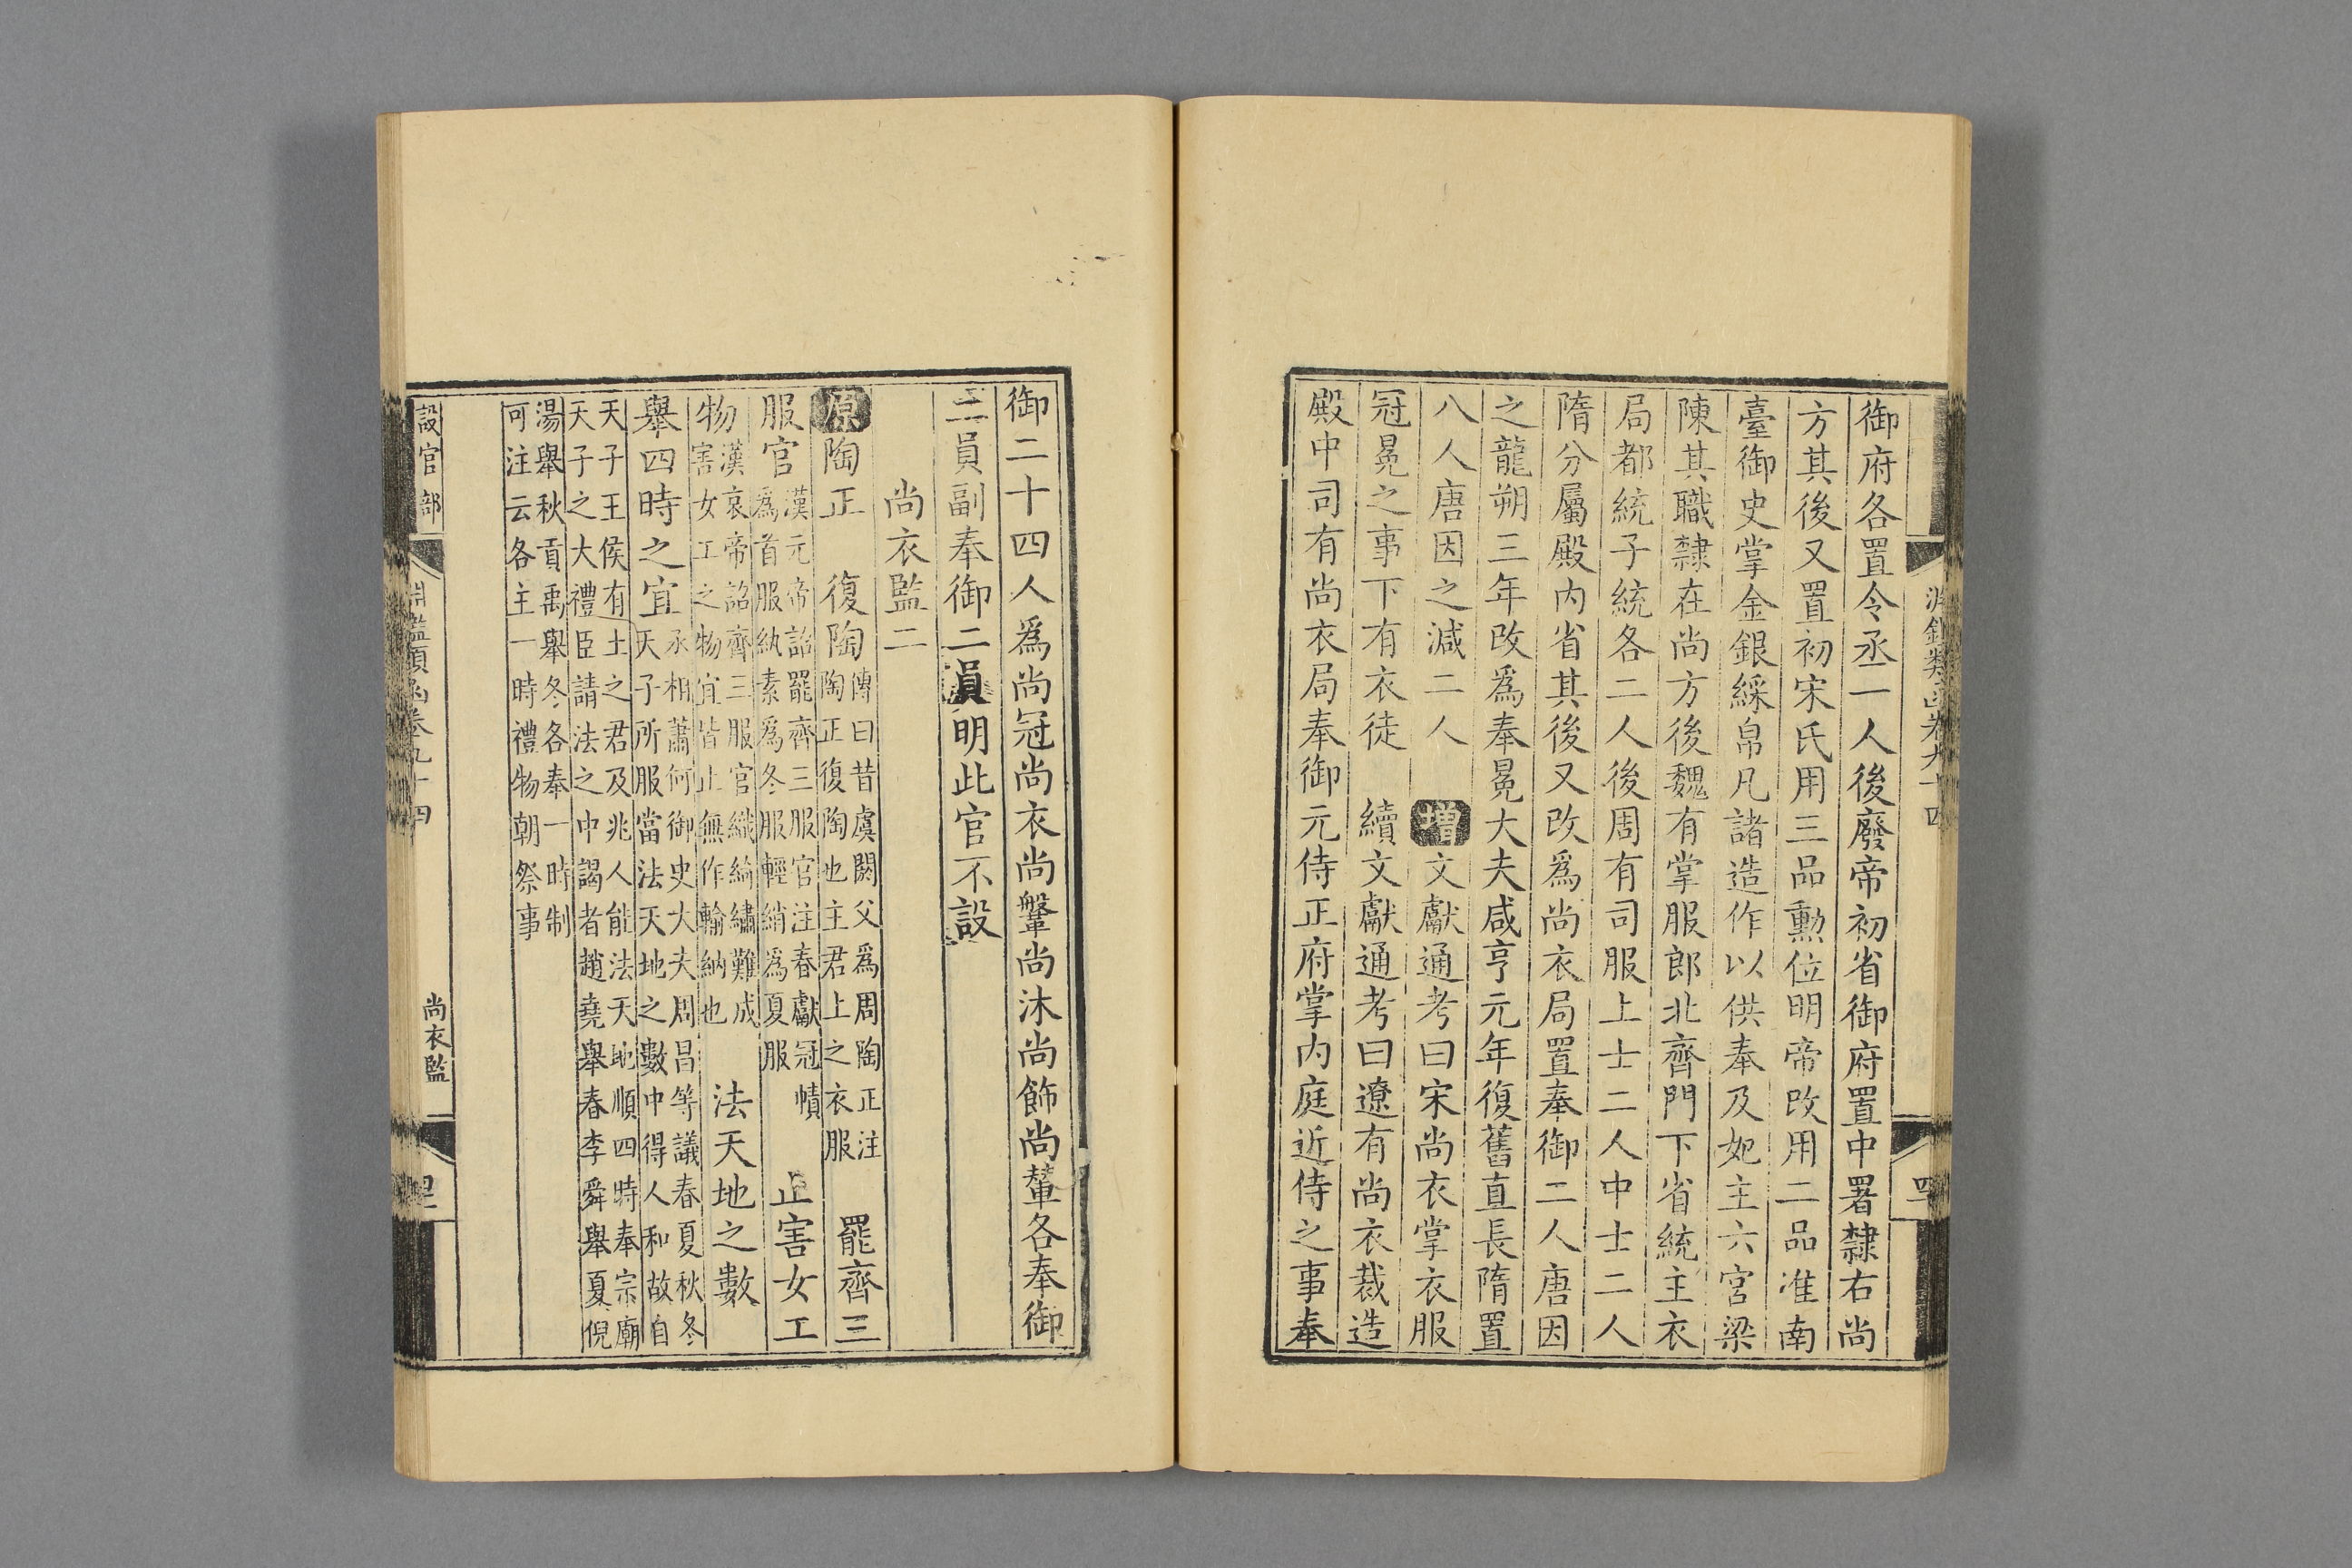 御府各置令丞一人後廢帝初省御府置中署隸右尚
方其後又置初宋氏用三品勳位明帝改用二品准南
臺御史掌金銀綵帛凡諸造作以供奉及妃主六宮梁
陳其職隸在尚方後魏有掌服郎北齊門下省統主衣
局都統子統各二人後周有司服上士二人中士二人
隋分屬殿內省其後又改爲尚衣局置奉御二人唐因
之龍朔三年改爲奉冕大夫咸亨元年復舊直長隋置
八人唐因之減二人 增文獻通考曰宋尚衣掌衣服
冠冕之事下有衣徒 續文獻通考曰遼有尚衣裁造
殿中司有尚衣局奉御元侍正府掌內庭近侍之事奉
御二十四人爲尚冠尚衣尚鞶尚沐尚飾尚輦各奉御
二員副奉御二員明此官不設
尚衣監二
原陶正 復陶傳曰昔虞閼父爲周陶正注陶正復陶也主君上之衣服 罷齊三
服官漢元帝詔罷齊三服官注春獻冠幘爲首服紈素爲冬服輕綃爲夏服 止害女工
物漢哀帝詔齊三服官織綺繡難成害女工之物宜皆止無作輸納也 法天地之數
舉四時之宜丞相蕭何御史大夫周昌等議春夏秋冬天子所服當法天地之數中得人和故自
天子王侯有土之君及兆人能法天地順四時奉宗廟天子之大禮臣請法之中謁者趙堯舉春李舜舉夏倪
湯舉秋貢禹舉冬各奉一時制可注云各主一時禮物朝祭事
設官部
淵鑑類函卷九十四
尚衣監
四